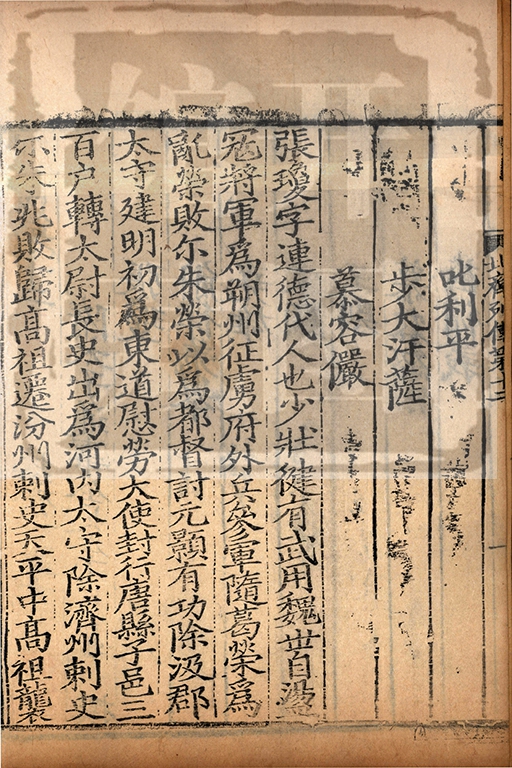 北齊列傳第十二
叱利平
步大汗薩
慕容儼
張瓊字連德代人也少壯健有武用魏世自盪
寇將軍爲朔州征虜府外兵參軍隨葛榮爲
亂榮敗尒朱榮以爲都督討元顥有功除汲郡
太守建明初爲東道慰勞大使封行唐縣子邑三
百戶轉太尉長史出爲河內太守除濟州刺史
尒朱兆敗歸高祖遷汾州刺史天平中高祖襲